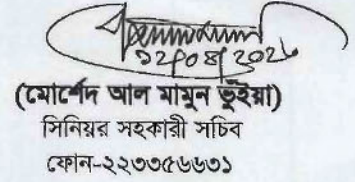 ১২/০৪/২০২৬
(মোর্শেদ আল মামুন ভূঁইয়া)
সিনিয়র সহকারী সচিব
ফোন-২২৩৩৫৬৬৩১